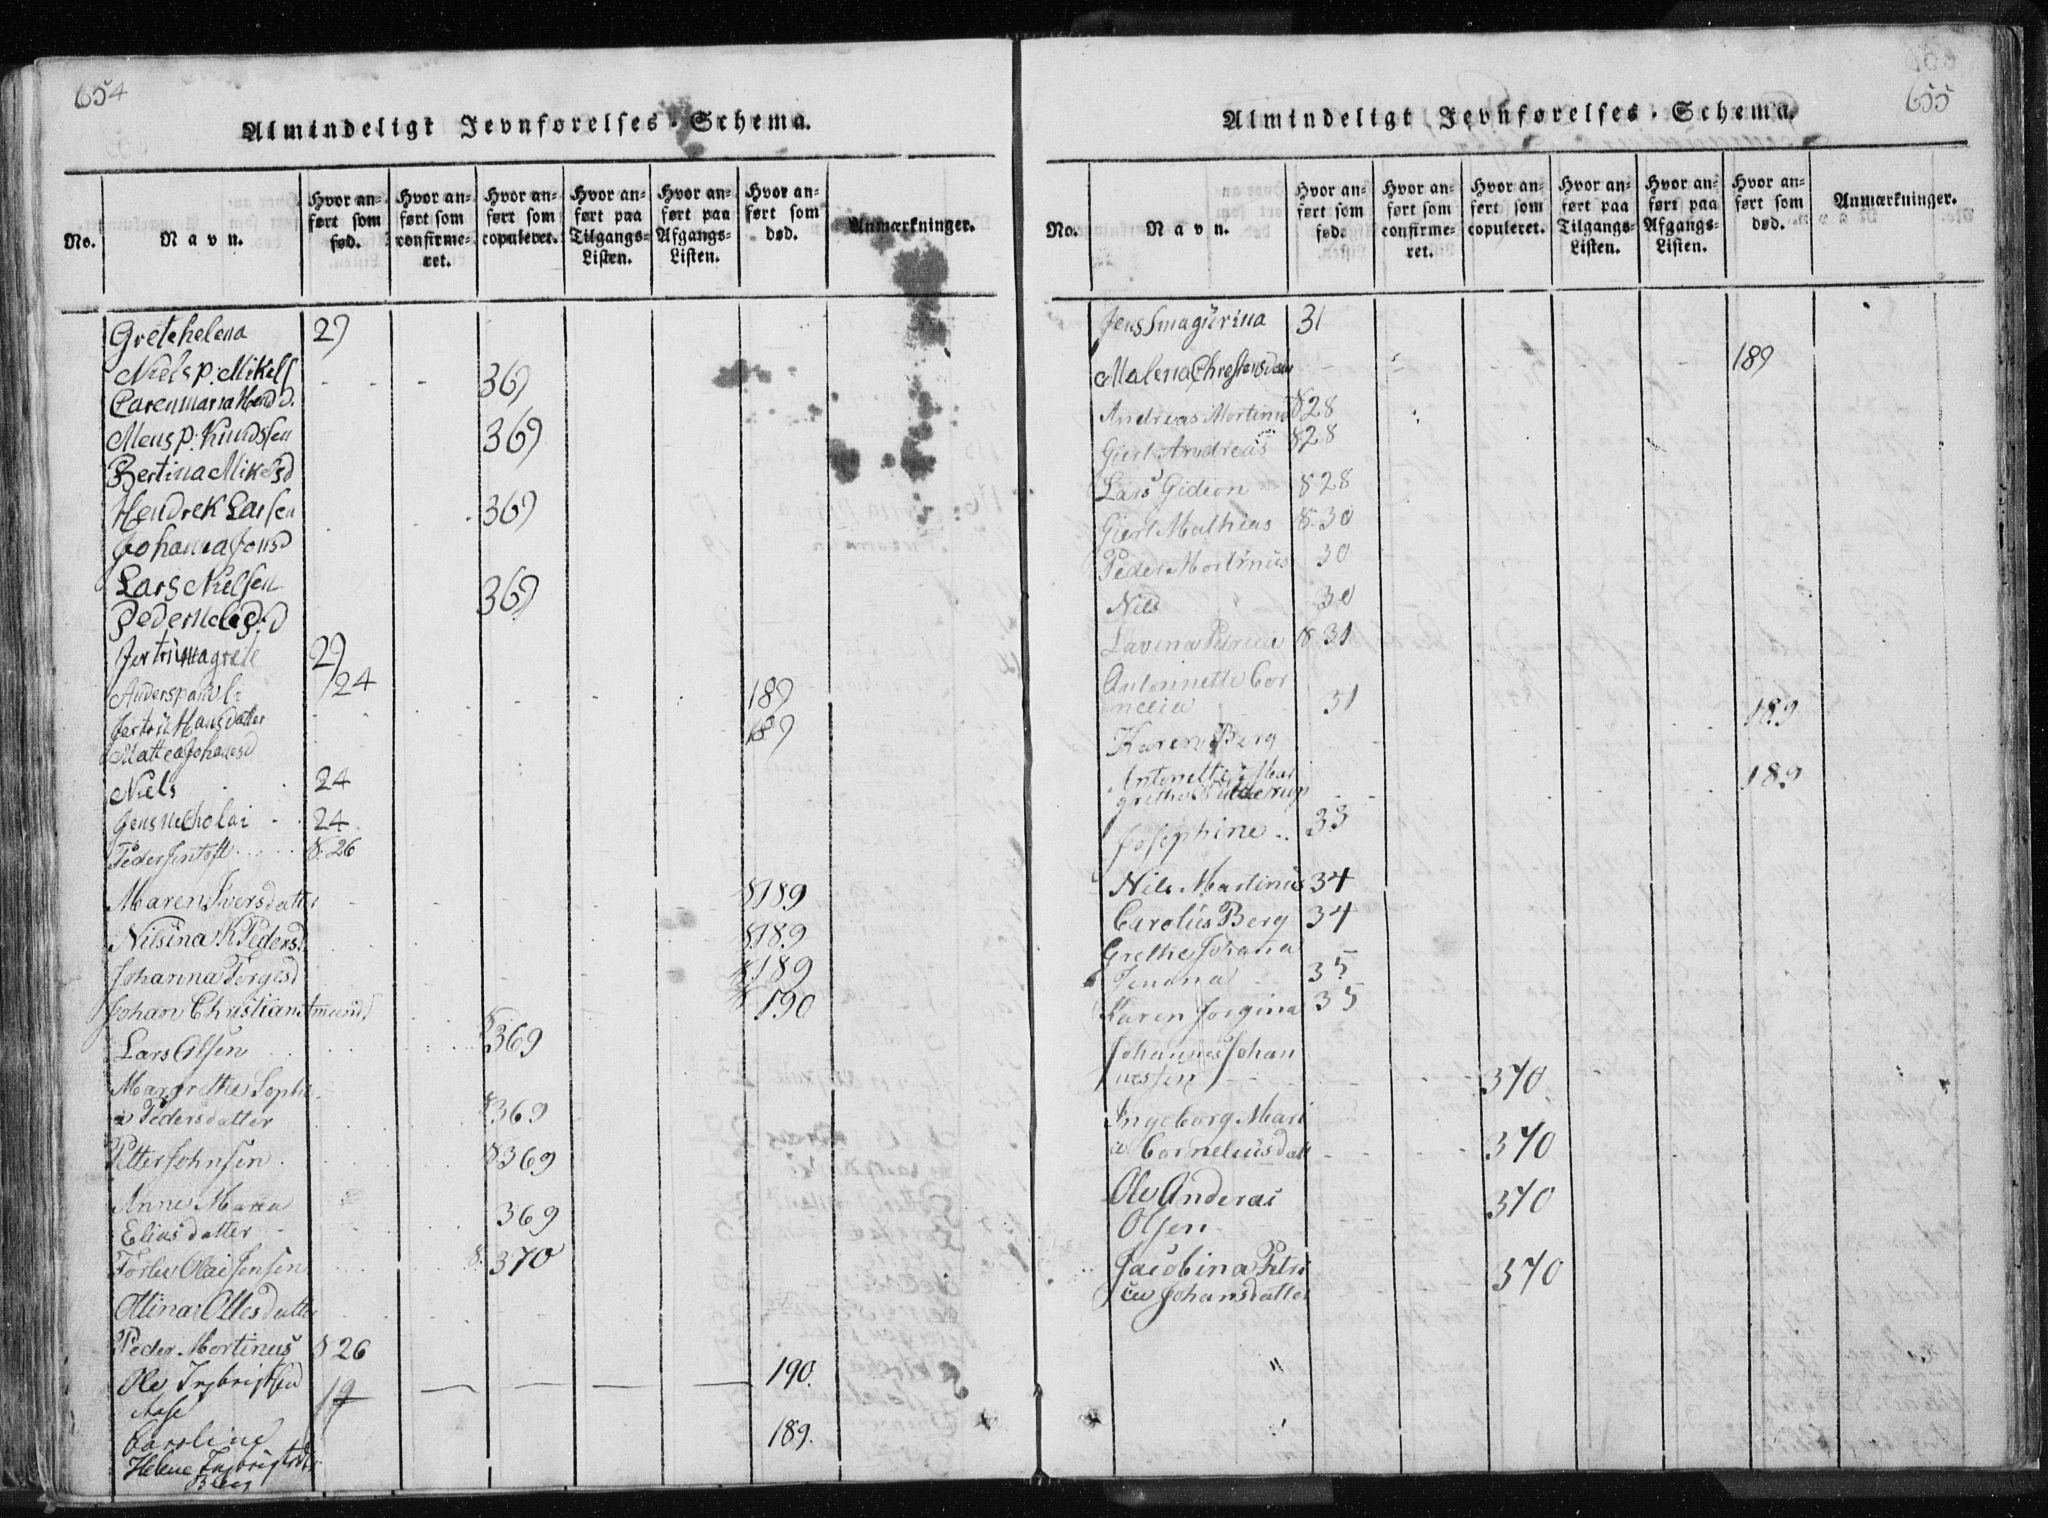 654
Almindeligt Jevnførelses-Schema.
No.
Navn.
Hvor anført som fød.
Hvor anført som confirmeret.
Hvor anført som copuleret.
Hvor anført paa Tilgangs-Listen.
Hvor anført paa Afgangs-Listen.
Hvor anført som død.
Anmærkninger.
Gretehelena 29
Niels p: Mikels 369
Carenmaria Hend d.
Mens p: Knudssen 369
Bertina Mikelsd
Hendrek Larsen 369
Johanna Jonsd
Lars Nielsen 369
Pedernela P. d
Jertrumagrete 29
Anderspauli 24 189
Jertru Hansdatter 189
Mattea Johansd
Niels 24
Jensnecholai 24
Peder Jentoft 8.26
Maren Iversdatter 189
Nilsina K Pedersd 189
Johanna Torgesd 189
Johan Christian Amunds 190
Lars Olsen 369
Margrethe Sophi
a Pedersdatter 369
Petter Johnsen 369
Anne Maria
Elias datter 369
Torlev Olai Jensen 370
Olina Ollesdatter
Peder Mortinus 8 26
Ole Ingbrigtsen 190.
Aase 19
Caroline 189.
Helene Ingbrigtsdtr
Berg
655
Almindeligt Jevnførelses-Schema.
No.
Navn.
Hvor anført som fød.
Hvor anført som confirmeret.
Hvor anført som copuleret.
Hvor anført paa Tilgangs-Listen.
Hvor anført paa Afgangs-Listen.
Hvor anført som død.
Anmærkninger.
Jenssmagurina 31
Malena Chrestensdatr 189
Andreas Mortinus 828
Giert Andreas 828
Lars Gideon 828
Giert Mathias 8.30
Peder Mortinus 30
Nils 30
Lavina Petrica 8.31
Antonnette Cor
nelia 31
Karen Berg 189
Antonette Mar
grethe 189
Josephine 33
Nils Martinus 34
Carolus Berg 34
Grethe Johana
35
Karen Jorgina 35
Johannes Johan
nessen 370
Ingeborg Mari
a Corneliusdatt 370
Ole Anderas 370
Olsen
Jacobina Petri
ca Johansdatter 370
"